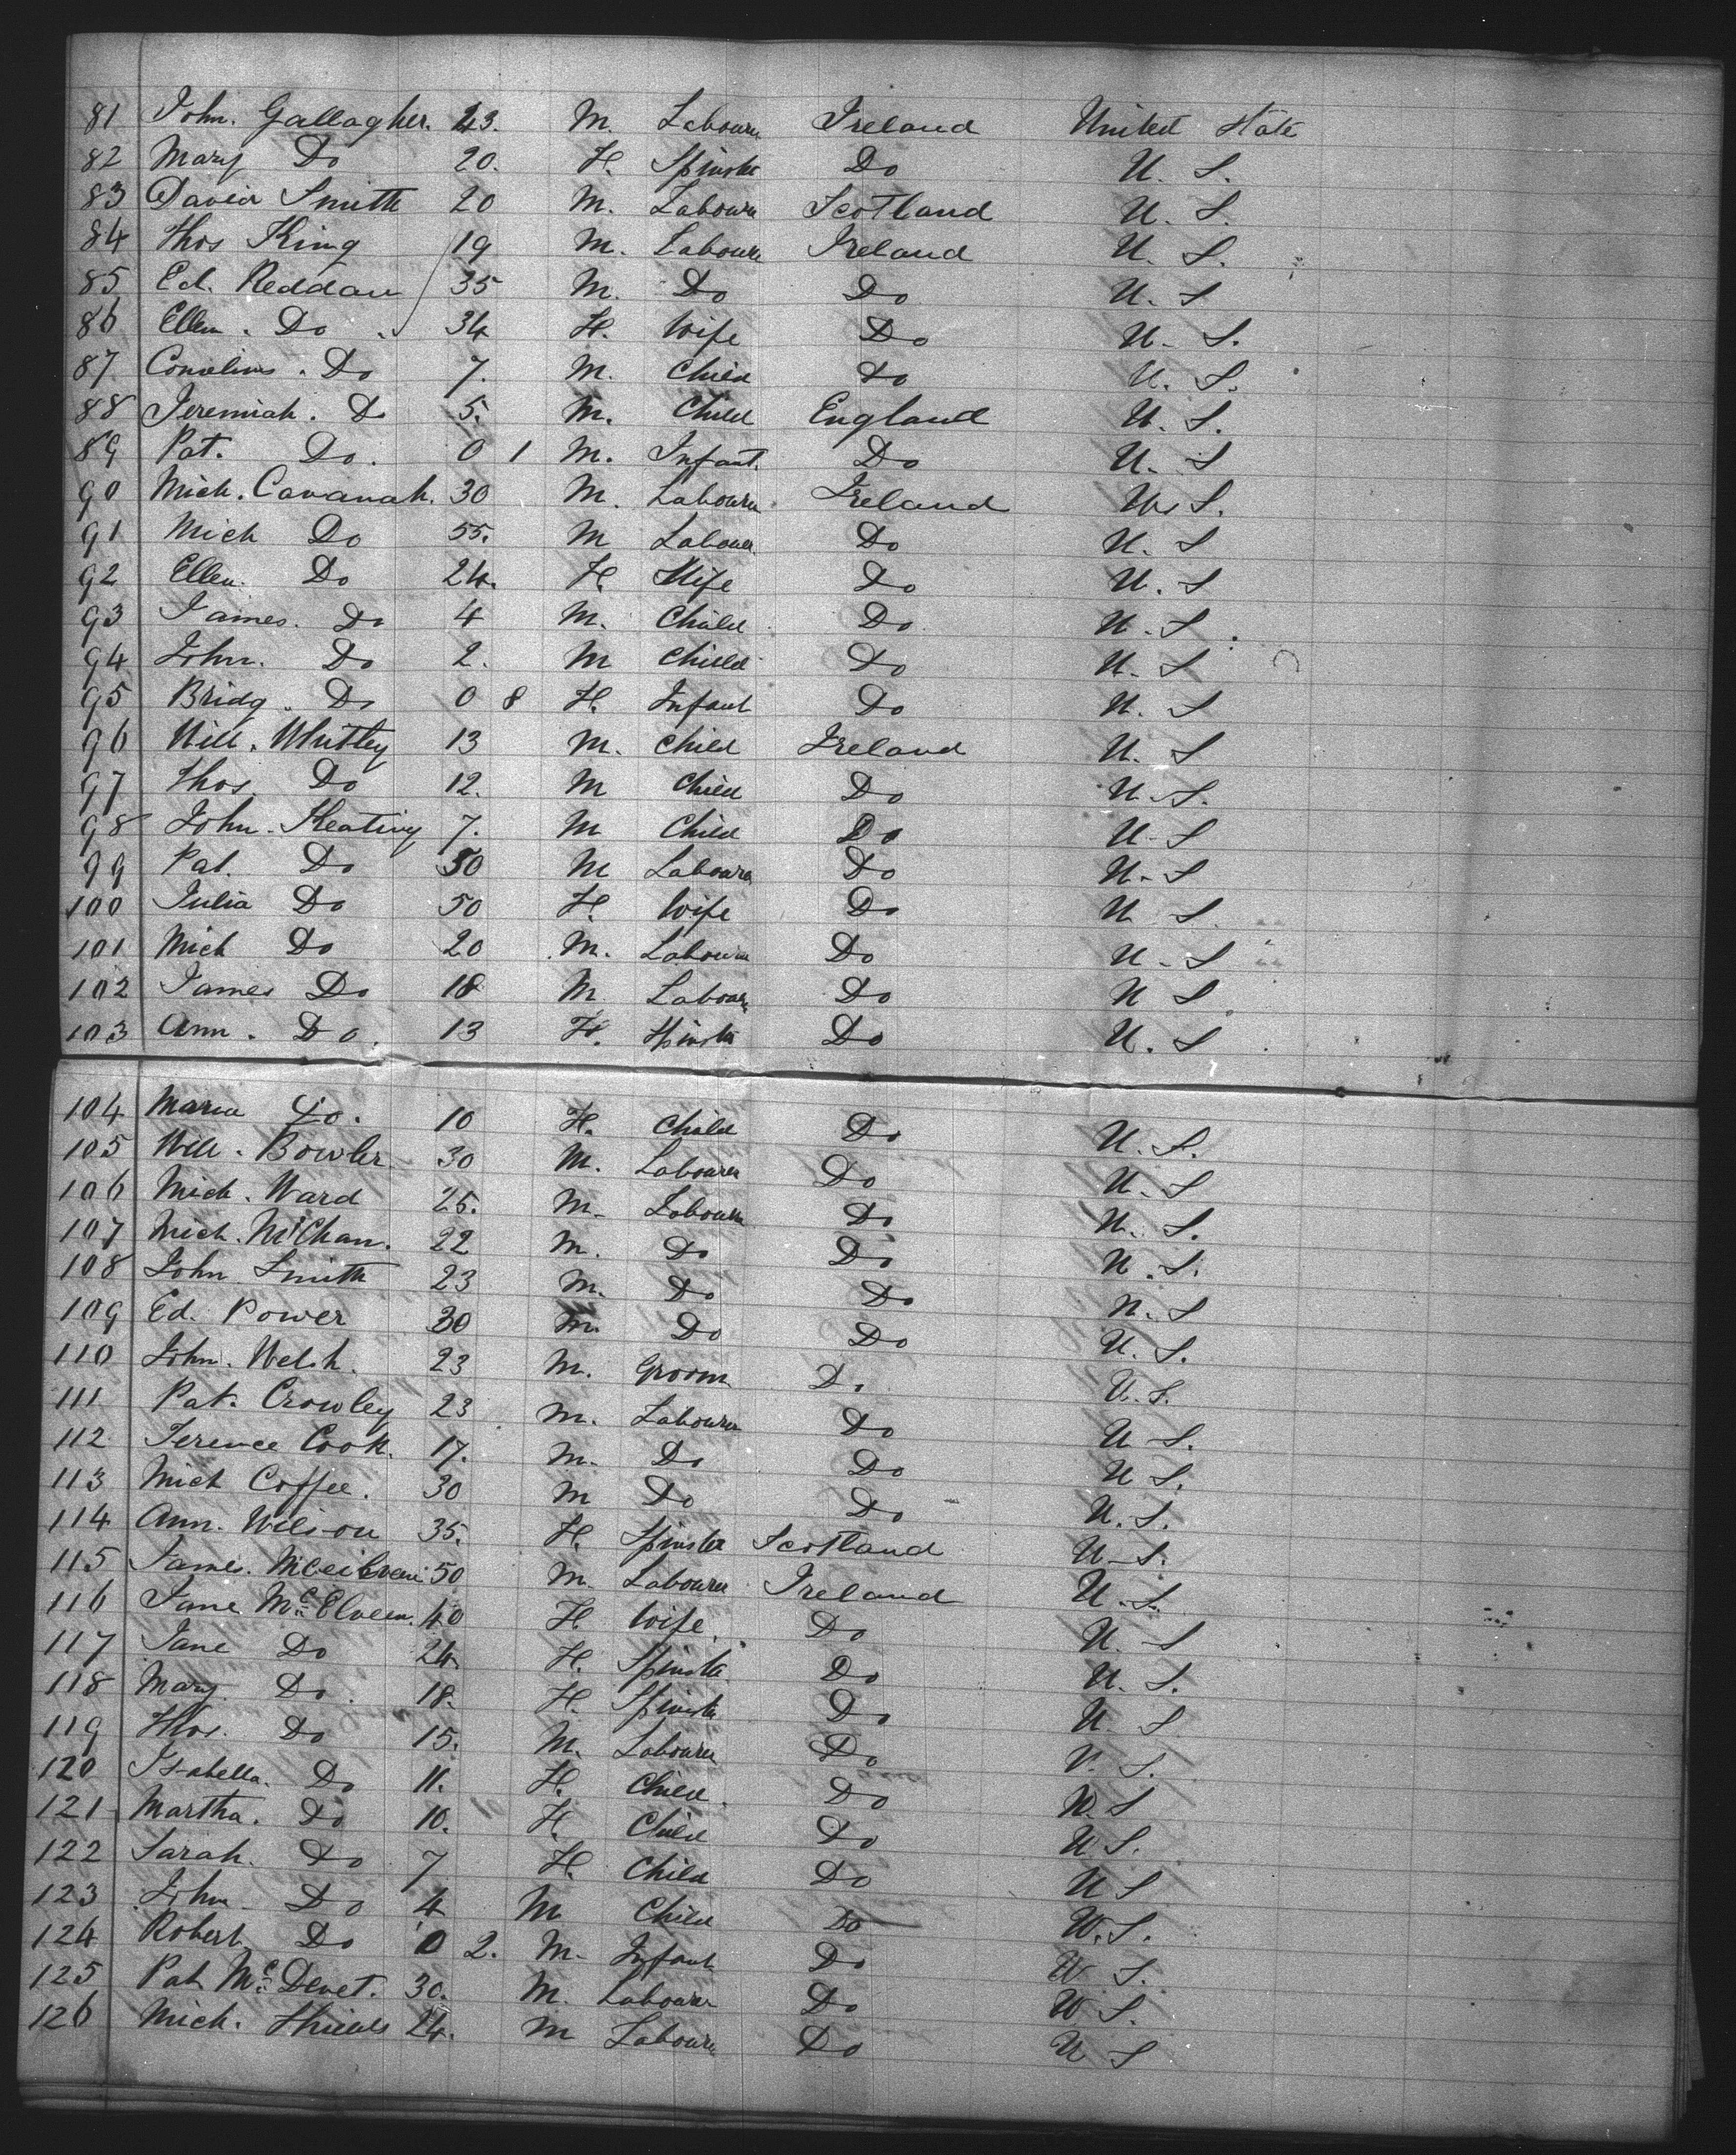 81 John. Gallagher. 23. M. Labourer Ireland United State
82 Mary Do 20. F. Spinster Do U. S.
83 David Smith 20 M. Labourer Scotland U. S.
84 Thos King 19 M. Labourer Ireland U. S.
85 Ed. Reddan 35 M. Do Do U. S
86 Ellen. Do 34 F. Wife Do U. S.
87 Cornelius. Do 7. M. Child Do U. S.
88 Jeremiah. Do 5. M. Child England U. S.
89 Pat. Do. 0 1 M. Infant. Do U. S
90 Mich. Cavanah. 30 M. Labourer Ireland U. S.
91 Mich Do 55. M Labourer Do U. S
92 Ellen. Do 24. F. Wife Do U. S
93 James. Do 4 M. Child Do U. S.
94 John. Do 2. M Child Do U. S
95 Bridg. Do 0 8 F. Infant Do U. S
96 Will. Whitley 13 M. Child Ireland U. S
97 Thos. Do 12. M Child Do U. S.
98 John. Keating 7. M Child Do U. S
99 Pat. Do 50 M Labourer Do U. S
100 Julia Do 50 F. Wife Do U S
101 Mich Do 20 M. Labourer Do U. S
102 James Do 18 M Labourer Do U S
103 Ann. Do. 13 F. Spinster Do U. S
104 Maria Do. 10 F. Child Do U. S.
105 Will. Bowler 30 M. Labourer Do U. S
106 Mich. Ward 25. M. Labourer Do U. S.
107 Mich. 22 M. Do Do U. S.
108 John Smith 23 M. Do Do U. S
109 Ed. Power 30 M. Do Do U. S.
110 John. Welsh. 23 M. Groom Do U. S.
111 Pat. Crowley 23 M. Labourer Do U S.
112 Terence Cook. 17. M. Do Do U S.
113 Mich Coffee. 30 M Do Do U. S.
114 Ann. Wilson 35. F. Spinster Scotland U. S.
115 James. 50 M. Labourer Ireland U. S.
116 Jane McElveen. 40 F. Wife. Do U. S
117 Jane Do 24. F. Spinster Do U. S.
118 Mary. Do. 18. F. Spinster Do U. S
119 Thos. Do 15. M. Labourer Do U. S.
120 Isabella. Do 11. F. Child. Do U. S
121 Martha. Do 10. F. Child Do U S.
122 Sarah. Do 7 F. Child Do U S
123 John Do 4 M Child Do U. S.
124 Robert Do 0 2. M. Infant Do U S.
125 Pat McDevet. 30. M. Labourer Do U S.
126 Mich. 24. M Labourer Do U S